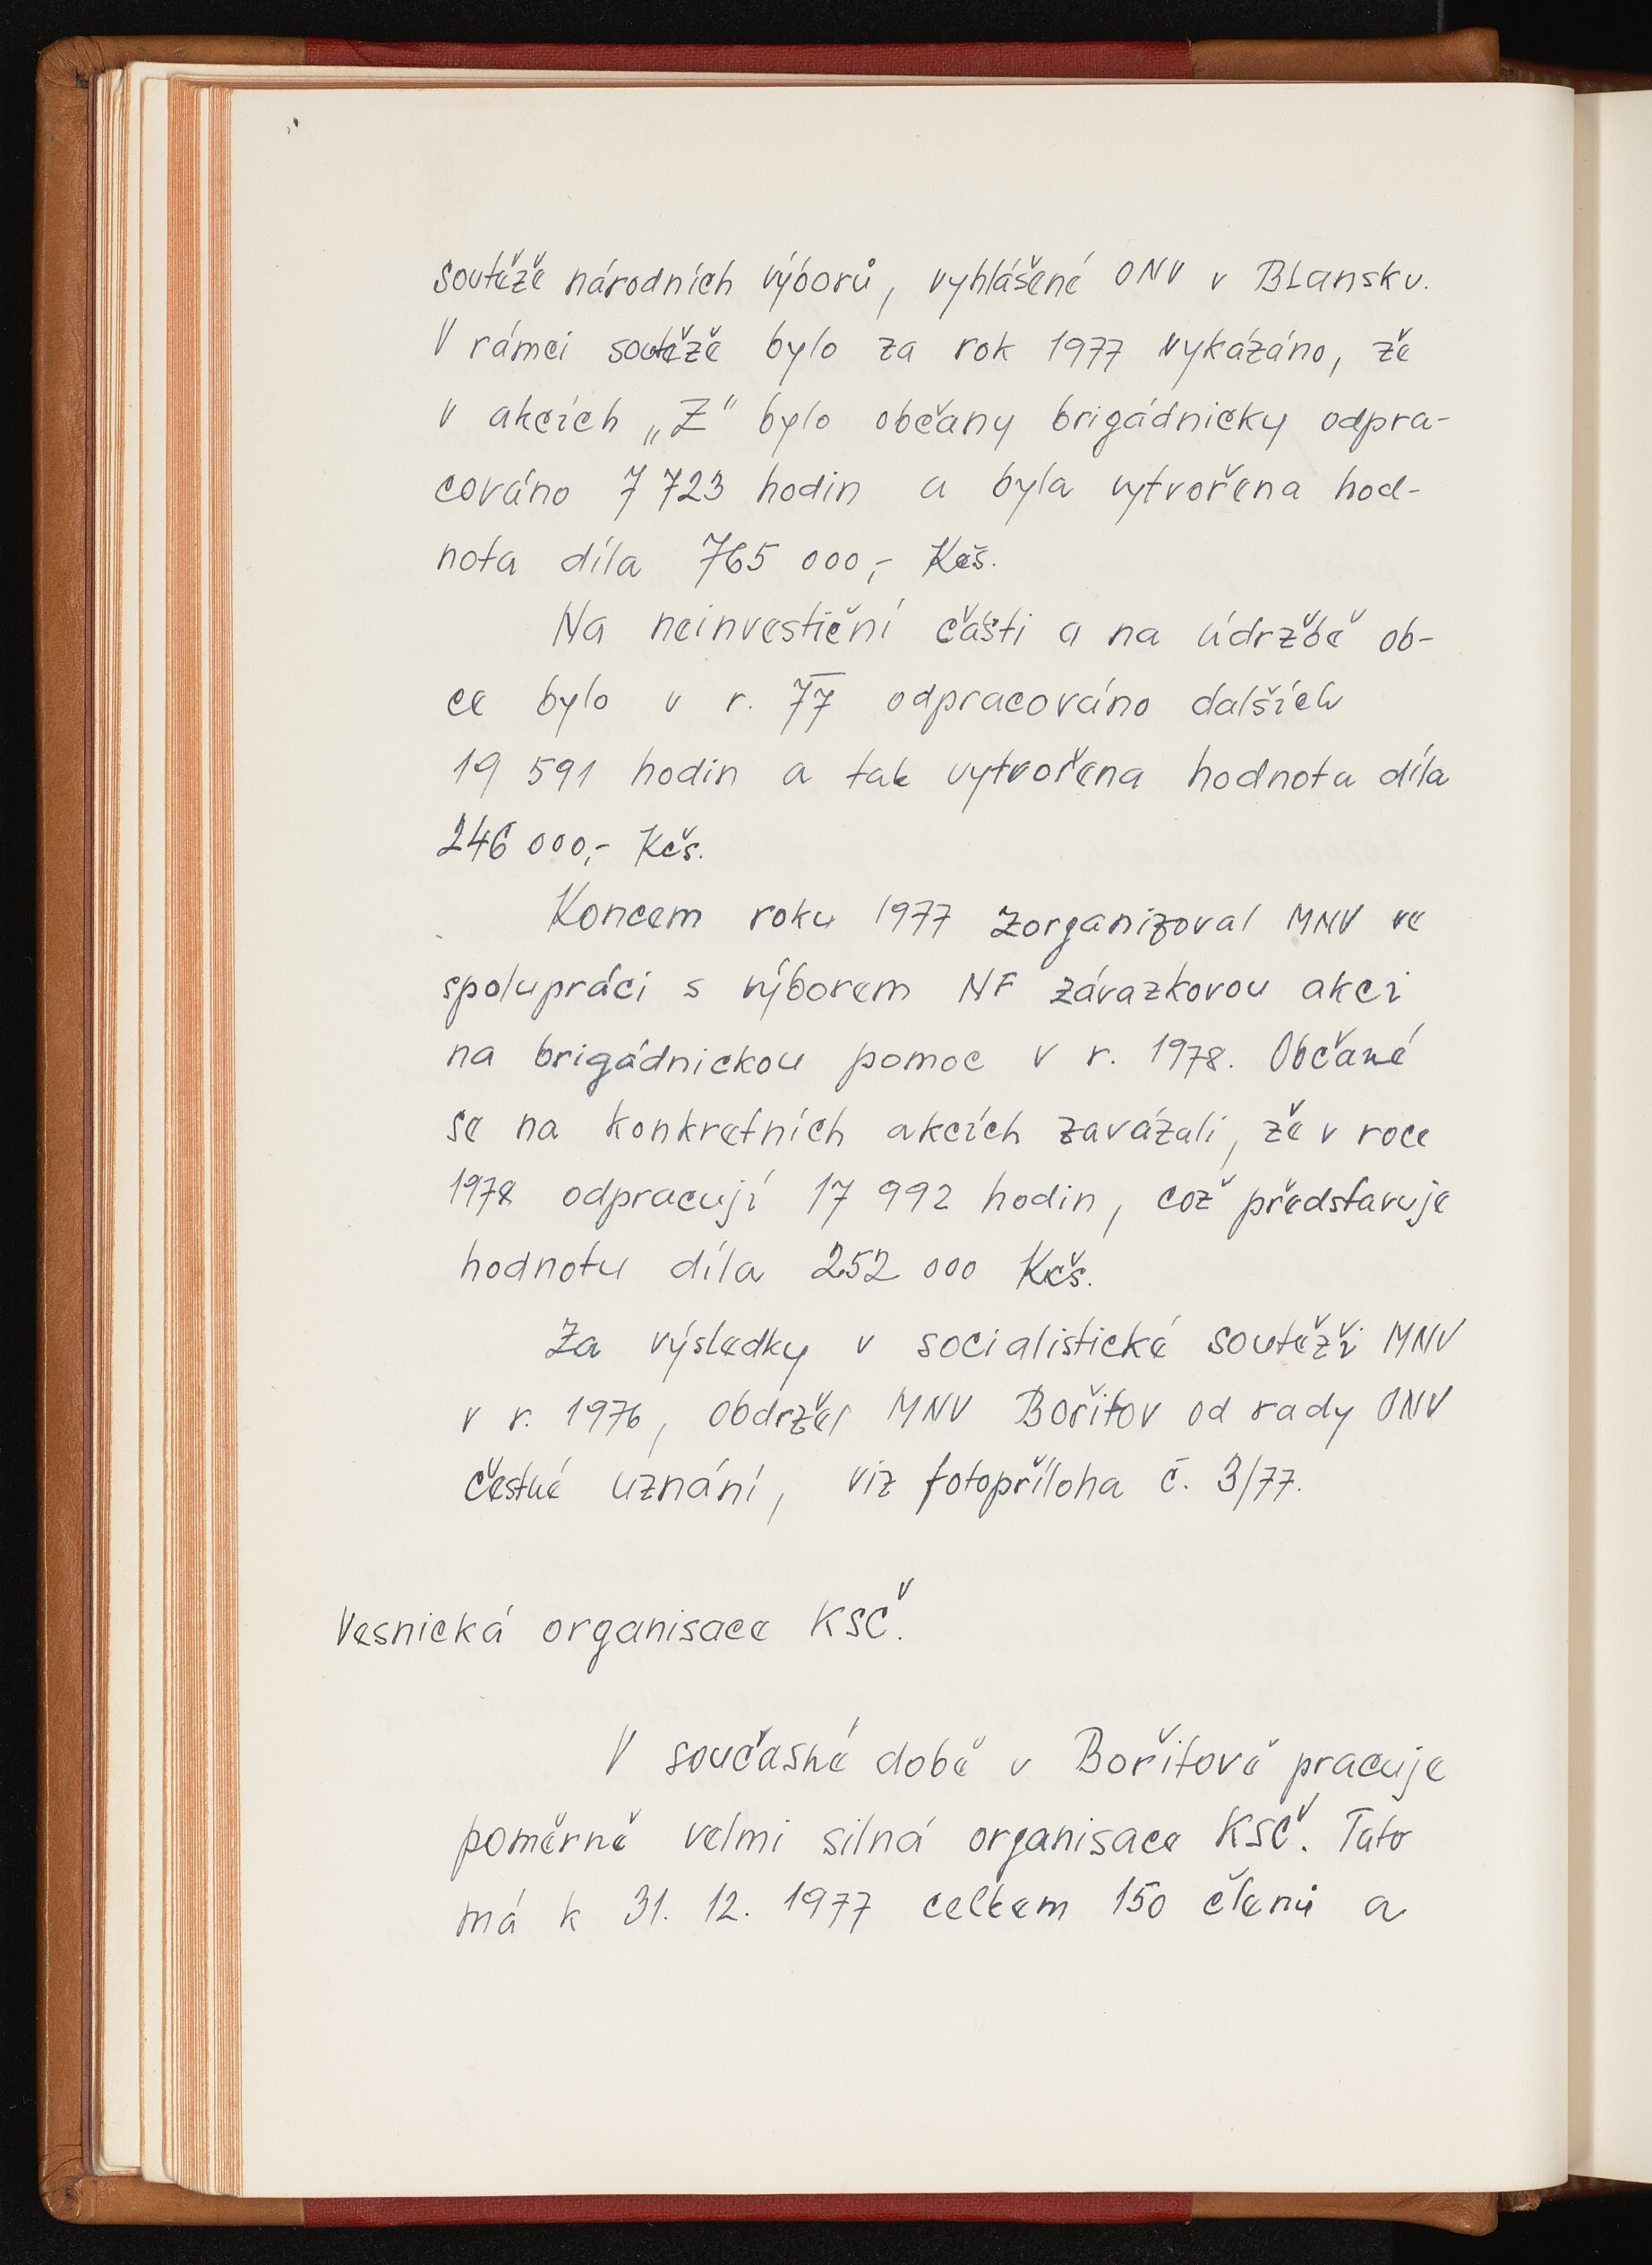 soutěže národních výborů, vyhlášené ONV v Blansku.
V rámci soutěže bylo za rok 1977 vykázáno, že
v akcích „Z" bylo občany brigádnicky odpra-
cováno 7 723 hodin a byla vytvořena hod-
nota díla 765 000,- Kčs.
Na neinvestiční části a na údržbě ob-
ce bylo v r. 77 odpracováno dalších
19 591 hodin a tak vytvořena hodnota díla
246 000,- Kčs.
Koncem roku 1977 zorganizoval MNV ve
spolupráci s výborem NF závazkovou akci
na brigádnickou pomoc v r. 1978. Občané
se na konkretních akcích zavázali, že v roce
1978 odpracují 17 992 hodin, což představuje
hodnotu díla 252 000 Kčs.
Za výsledky v socialistické soutěži MNV
v r. 1976, obdržel MNV Bořitov od rady ONV
čestné uznání, viz fotopříloha č. 3/77.
Vesnická organisace KSČ.
V současné době v Bořitově pracuje
poměrně velmi silná organisace KSČ. Tato
má k 31. 12. 1977 celkem 150 členů a